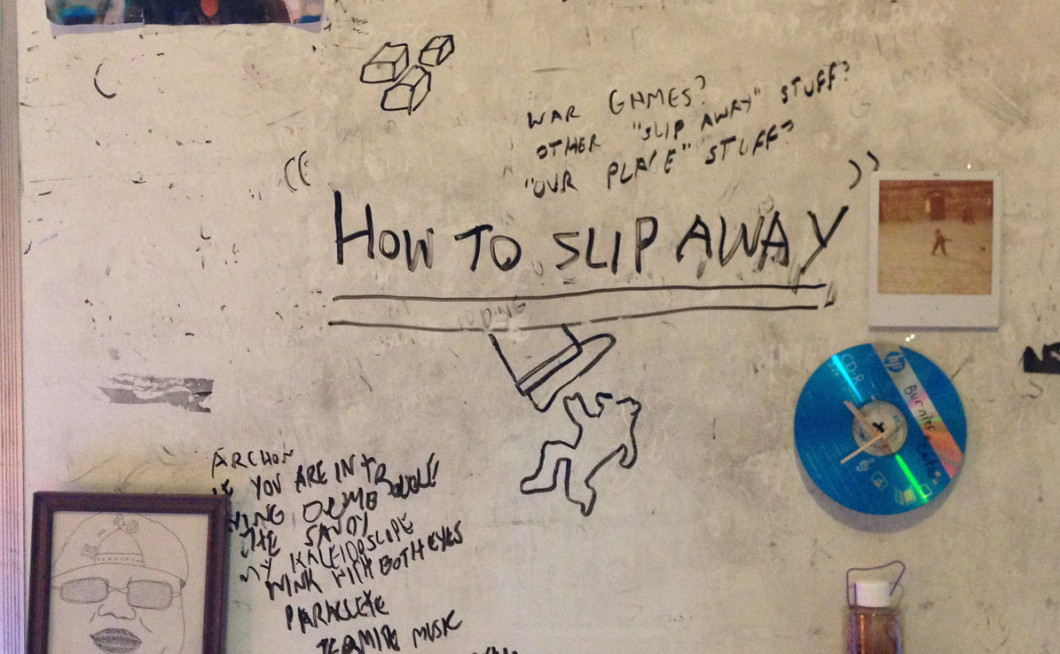 WAR GAMES?
OTHER "SLIP AWAY" STUFF?
"OUR PLACE" STUFF?
HOW TO SLIP AWAY
hp
CD-R
Burnier
ARCHON
IF YOU ARE IN TROUBLE!
DUMB
THE SANDY
MY KALEIDOSCOPE
WINK WITH BOTH EYES
PARACLETE
MUSIC